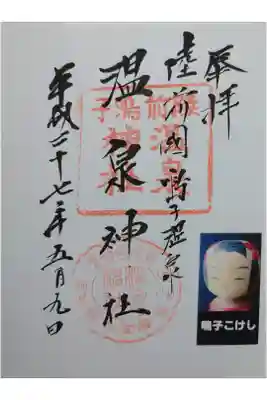 奉拝
陸前國鳴子温泉
温泉神社
平成二十七年五月九日
鳴子こけし